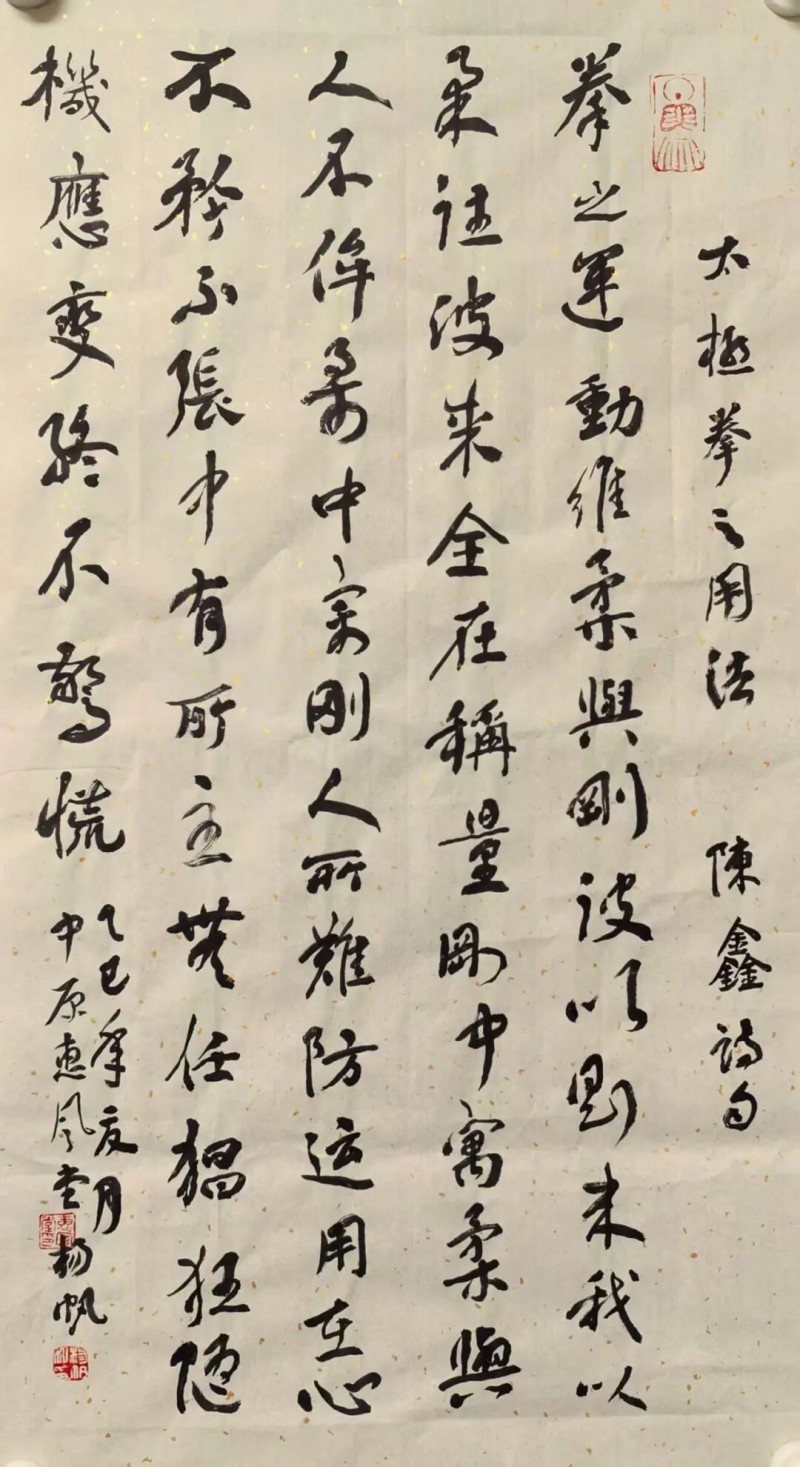 太極拳之用法 陳鑫詩句
拳之運動維柔與剛彼以剛来我以
柔往彼来全在稱量剛中寓柔與
人不侔柔中寓剛人所難防运用在心
不矜不張中有所主無任猖狂随
機應變終不驚慌
乙巳年夏月
中原惠风堂杨帆